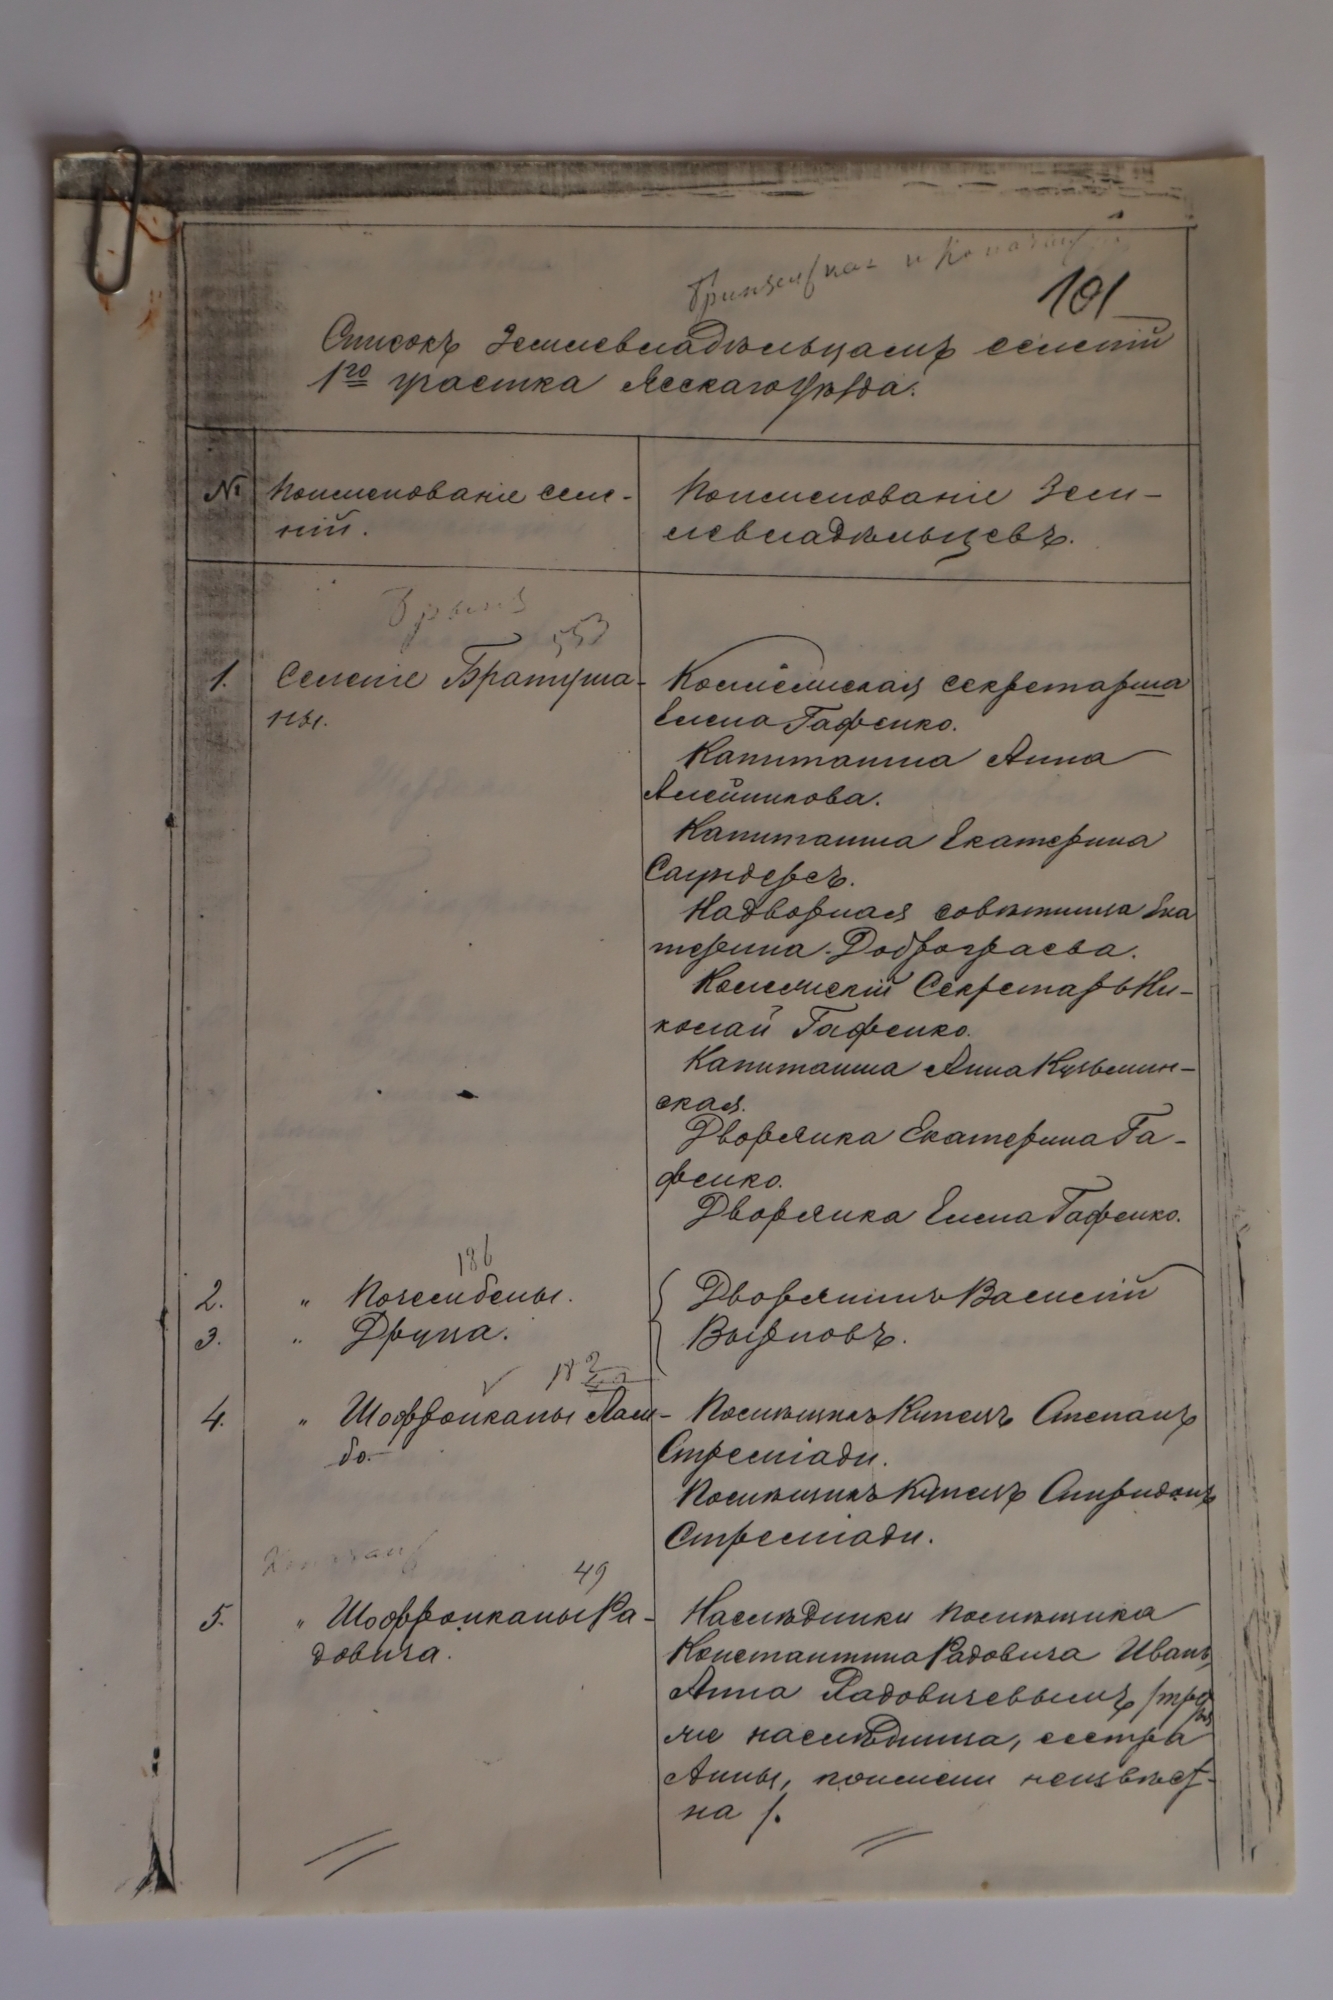 101
Списокъ Землевладѣльцамъ селеній
1го участка Ясскаго Уѣзда.
№ Поименованіе селе-
ній.
Поименованіе Зем-
левладѣльцевъ.
553
1. Селеніе Братуша-
ны.
Коллежская секретарша
Елена Гафенко.
Капитанша Анна
Алейникова.
Капитанша Екатерина
Саундерсъ.
Надворная совѣтница Ека
терина Доброграева.
Коллежскій Секретарь Ни-
колай Гафенко.
Капитанша Анна Кузьмин-
ская.
Дворянка Екатерина Га-
фенко.
Дворянка Елена Гафенко.
186
2. " Почембены.
3. " Друца.
Дворянинъ Василій
Вырновъ.
182
4. " Шоффронканы Лам-
бо.
Помѣщикъ Купецъ Степанъ
Стреміади.
Помѣщикъ Купецъ Спиридонъ
Стреміади.
49
5. " Шоффронканы Ра-
довича.
Наслѣдники помѣщика
Константина Радовича Иванъ,
Анна Радовичевымъ
наслѣдница, сестра
Анны, поимени неизвѣст-
на /.